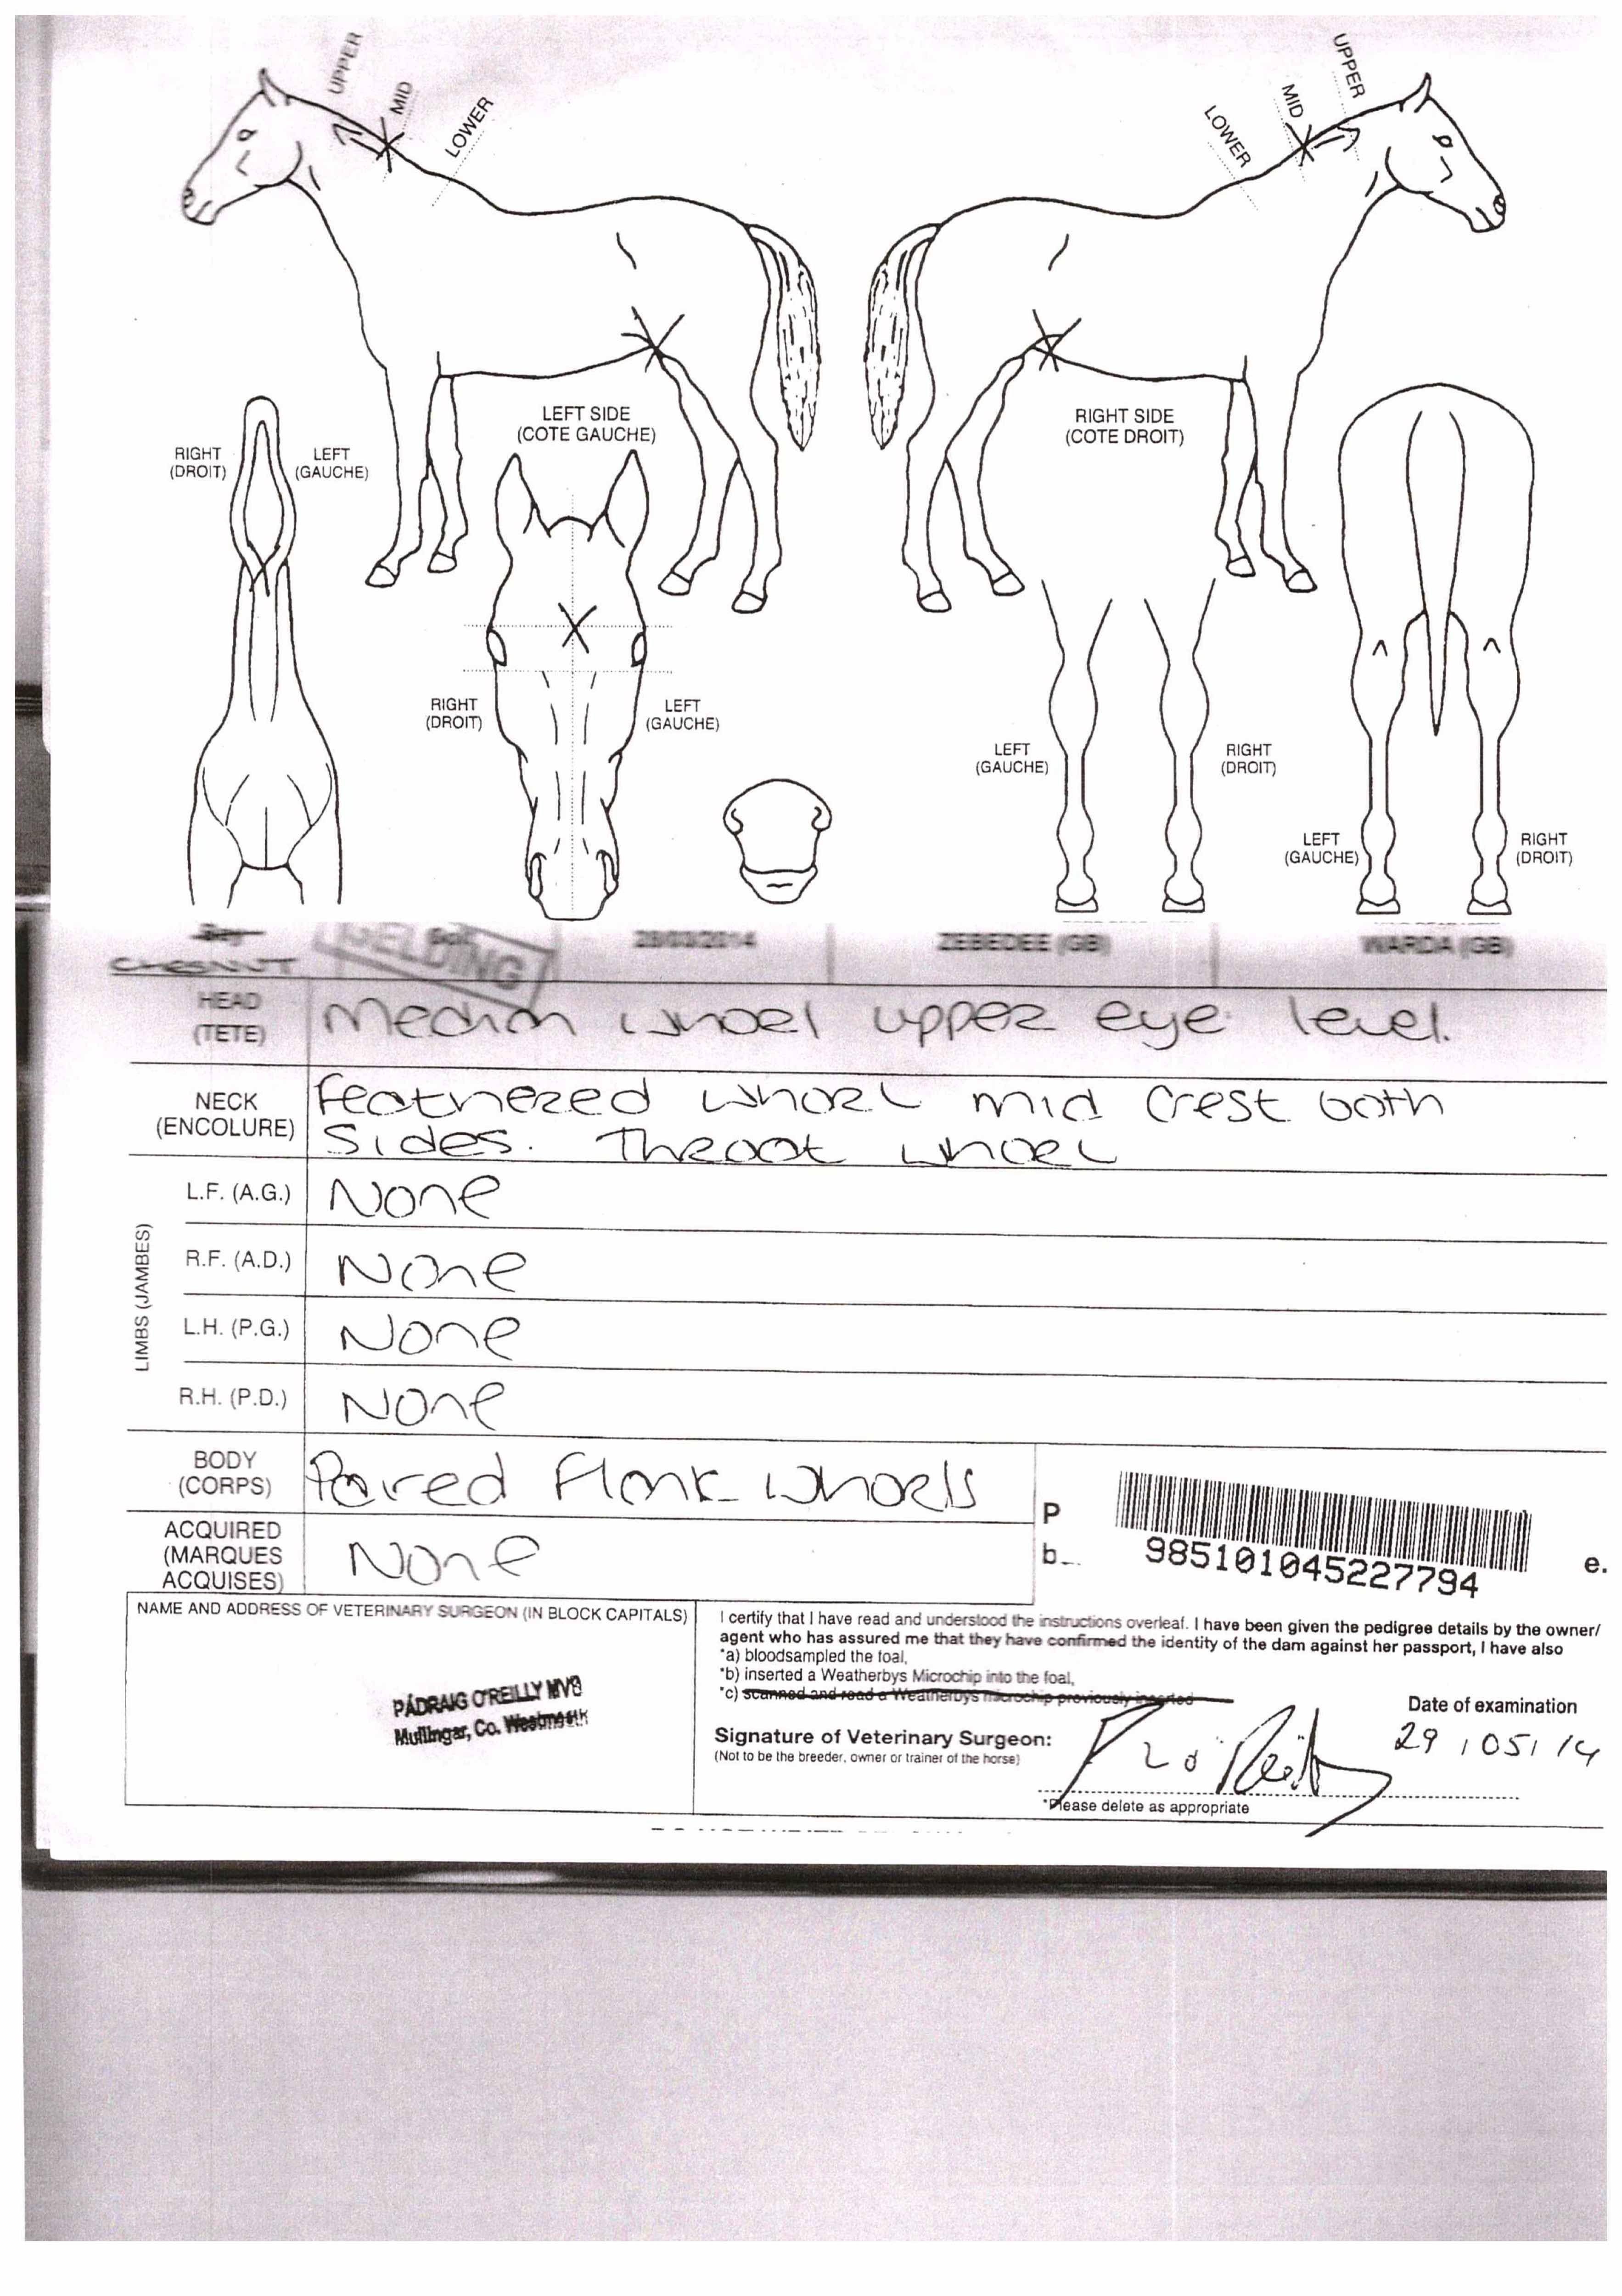 UPPER
MID
LOWER
LOWER
MID
UPPER
LEFT SIDE
(COTE GAUCHE)
RIGHT SIDE
(COTE DROIT)
RIGHT
(DROIT)
LEFT
(GAUCHE)
RIGHT
(DROIT)
LEFT
(GAUCHE)
LEFT
(GAUCHE)
RIGHT
(DROIT)
LEFT
(GAUCHE)
RIGHT
(DROIT)
Bay Colt 28/03/2014 ZEBEDEE (GB) WARDA (GB)
GELDING
CHESNUT
HEAD
(TETE)
Median whorl upper eye level.
NECK
(ENCOLURE)
Feathered whorl mid crest both
sides. Throat whorl
LIMBS (JAMBES)
L.F. (A.G.) None
R.F. (A.D.) None
L.H. (P.G.) None
R.H. (P.D.) None
BODY
(CORPS)
Paired Flank whorls
ACQUIRED
(MARQUES
ACQUISES)
None
P
b
985101045227794
e.
NAME AND ADDRESS OF VETERINARY SURGEON (IN BLOCK CAPITALS)
PÁDRAIG O'REILLY MVB
Mullingar, Co. Westmeath
I certify that I have read and understood the instructions overleaf. I have been given the pedigree details by the owner/
agent who has assured me that they have confirmed the identity of the dam against her passport, I have also
*a) bloodsampled the foal,
*b) inserted a Weatherbys Microchip into the foal,
*c) scanned and read a Weatherbys microchip previously inserted
Date of examination
29/05/14
Signature of Veterinary Surgeon:
(Not to be the breeder, owner or trainer of the horse)
*Please delete as appropriate